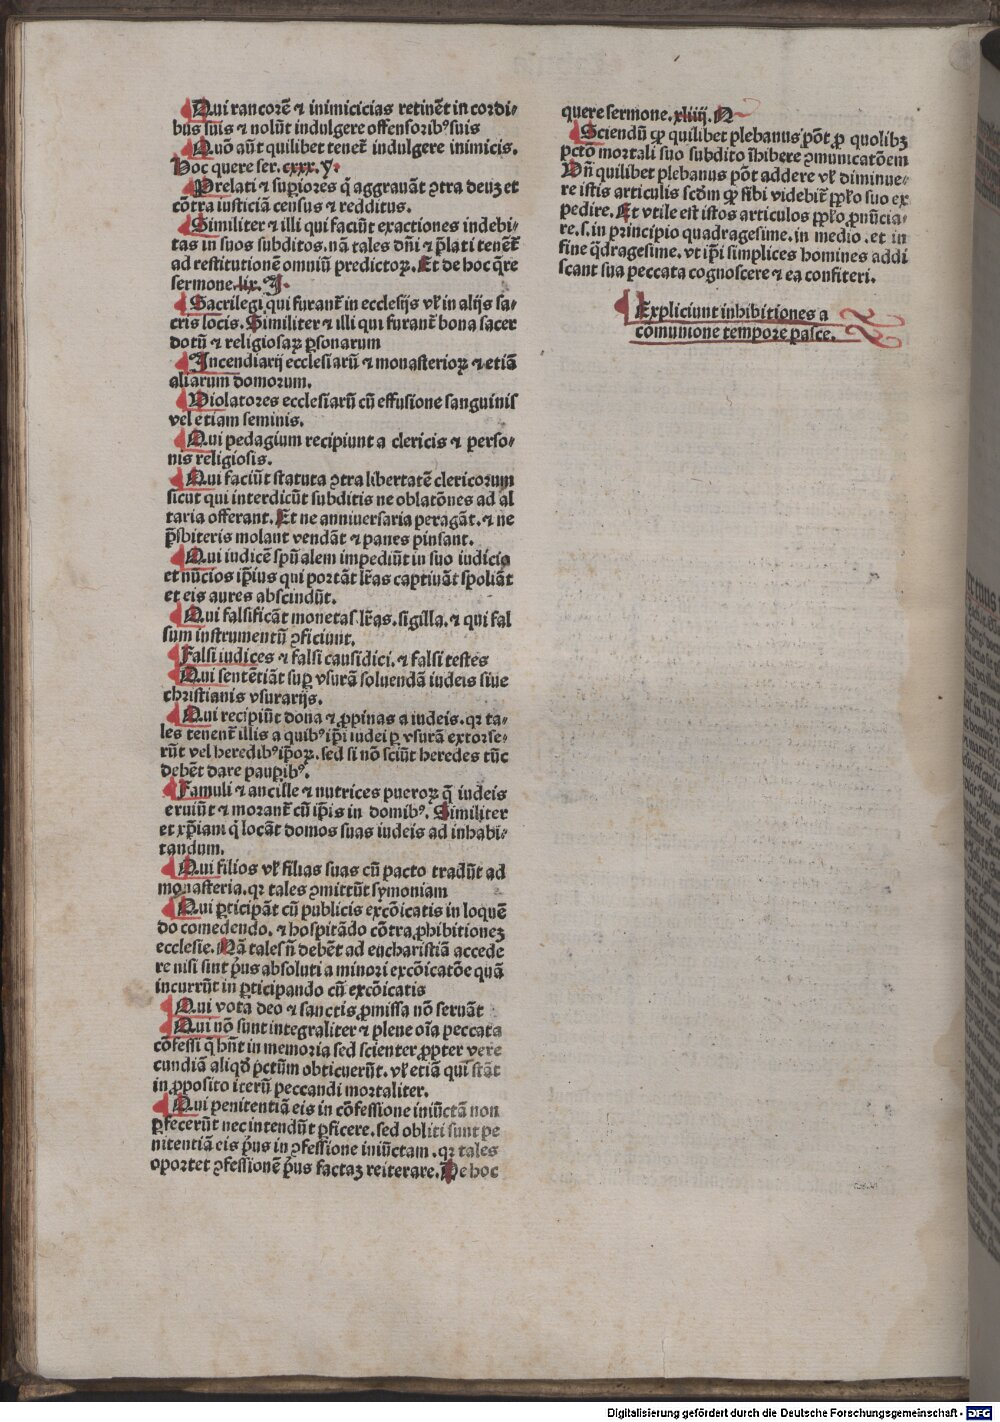 Qui rancorē ⁊ inimicicias retinēt in cordi⸗
bus suis ⁊ nolūt indulgere offensoribꝰ suis
Quō aūt quilibet tenet᷑ indulgere inimicis.
Hoc quere ser. cxxx. Y.
Prelati ⁊ suꝑiores q̄ aggrauāt ꝯtra deuꝫ et
cōtra iusticiā census ⁊ redditus.
Similiter ⁊ illi qui faciūt exactiones indebi⸗
tas in suos subditos. nā tales dn̄i ⁊ p̄lati tenēt᷑
ad restitutionē omniū predictoꝝ. Et de hoc q̄re
sermone. lix. J.
Sacrilegi qui furant᷑ in ecclesijs vl̓ in alijs sa⸗
cris locis. Similiter ⁊ illi qui furant᷑ bona sacer
dotū ⁊ religiosaꝝ ꝑsonarum
Incendiarij ecclesiarū ⁊ monasterioꝝ ⁊ etiā
aliarum domorum.
Violatores ecclesiarū cū effusione sanguinis
vel etiam seminis.
Qui pedagium recipiunt a clericis ⁊ perso⸗
nis religiosis.
Qui faciūt statuta ꝯtra libertatē clericorum
sicut qui interdicūt subditis ne oblatōnes ad al
taria offerant. Et ne anniuersaria peragāt. ⁊ ne
p̄sbiteris molant vendāt ⁊ panes pinsant.
Qui iudicē spūalem impediūt in suo iudicio
et nūcios ip̄ius qui portāt lr̄as captiuāt spoliāt
et eis aures abscindūt.
Qui falsificāt monetas lr̄as. sigilla. ⁊ qui fal
sum instrumentū ꝯficiunt.
Falsi iudices ⁊ falsi causidici. ⁊ falsi testes
Qui sentētiāt suꝑ vsurā soluendā iudeis siue
christianis vsurarijs.
Qui recipiūt dona ⁊ ꝓpinas a iudeis. qꝛ ta⸗
les tenent᷑ illis a quibꝰ ip̄i iudei ꝑ vsurā extorse⸗
rūt vel heredibꝰ ip̄oꝝ. sed si nō sciūt heredes tūc
debēt dare pauꝑibꝰ.
Famuli ⁊ ancille ⁊ nutrices pueroꝝ q̄ iudeis
eruiūt ⁊ morant᷑ cū ip̄is in domibꝰ. Similiter
et xp̄iani q̄ locāt domos suas iudeis ad inhabi⸗
tandum.
Qui filios vl̓ filias suas cū pacto tradūt ad
monasteria. qꝛ tales ꝯmittūt symoniam
Qui ꝑticipāt cū publicis excōicatis in loquē
do comedendo. ⁊ hospitādo cōtra ꝓhibitioneꝫ
ecclesie. Nā tales n̄ debēt ad eucharistiā accede
re nisi sint p̓us absoluti a minori excōicatōe quā
incurrūt in ꝑticipando cū excōicatis
Qui vota deo ⁊ sanctis ꝓmissa nō seruāt
Qui nō sunt integraliter ⁊ plene oīa peccata
cōfessi q̄ hn̄t in memoria sed scienter ꝓpter vere
cundiā aliqd̓ pctūm obticuerūt. vl̓ etiā qui stāt
in ꝓposito iterū peccandi mortaliter.
Qui penitentiā eis in cōfessione iniūctā non
ꝑfecerūt nec intendūt ꝑficere. sed obliti sunt pe
nitentiā eis p̓us in ꝯfessione iniūctam. qꝛ tales
oportet ꝯfessionē p̓us factaꝫ reiterare. De hoc
quere sermone. xliiij. N
Sciendū ꝙ quilibet plebanus pōt ꝓ quolibꝫ
pctō mortali suo subdito īhibere ꝯmunicatōem
Vn̄ quilibet plebanus pōt addere vl̓ diminue⸗
re istis articulis scd̓m ꝙ sibi videbit᷑ ppl̓o suo ex
pedire. Et vtile est istos articulos ppl̓o ꝓnūcia⸗
re. s. in principio quadragesime. in medio. et in
fine q̄dragesime. vt ip̄i simplices homines addi
scant sua peccata cognoscere ⁊ ea confiteri.
Expliciunt inhibitiones a
cōmunione tempore pasce.
Digitalisierung gefördert durch die Deutsche Forschungsgemeinschaft - DFG